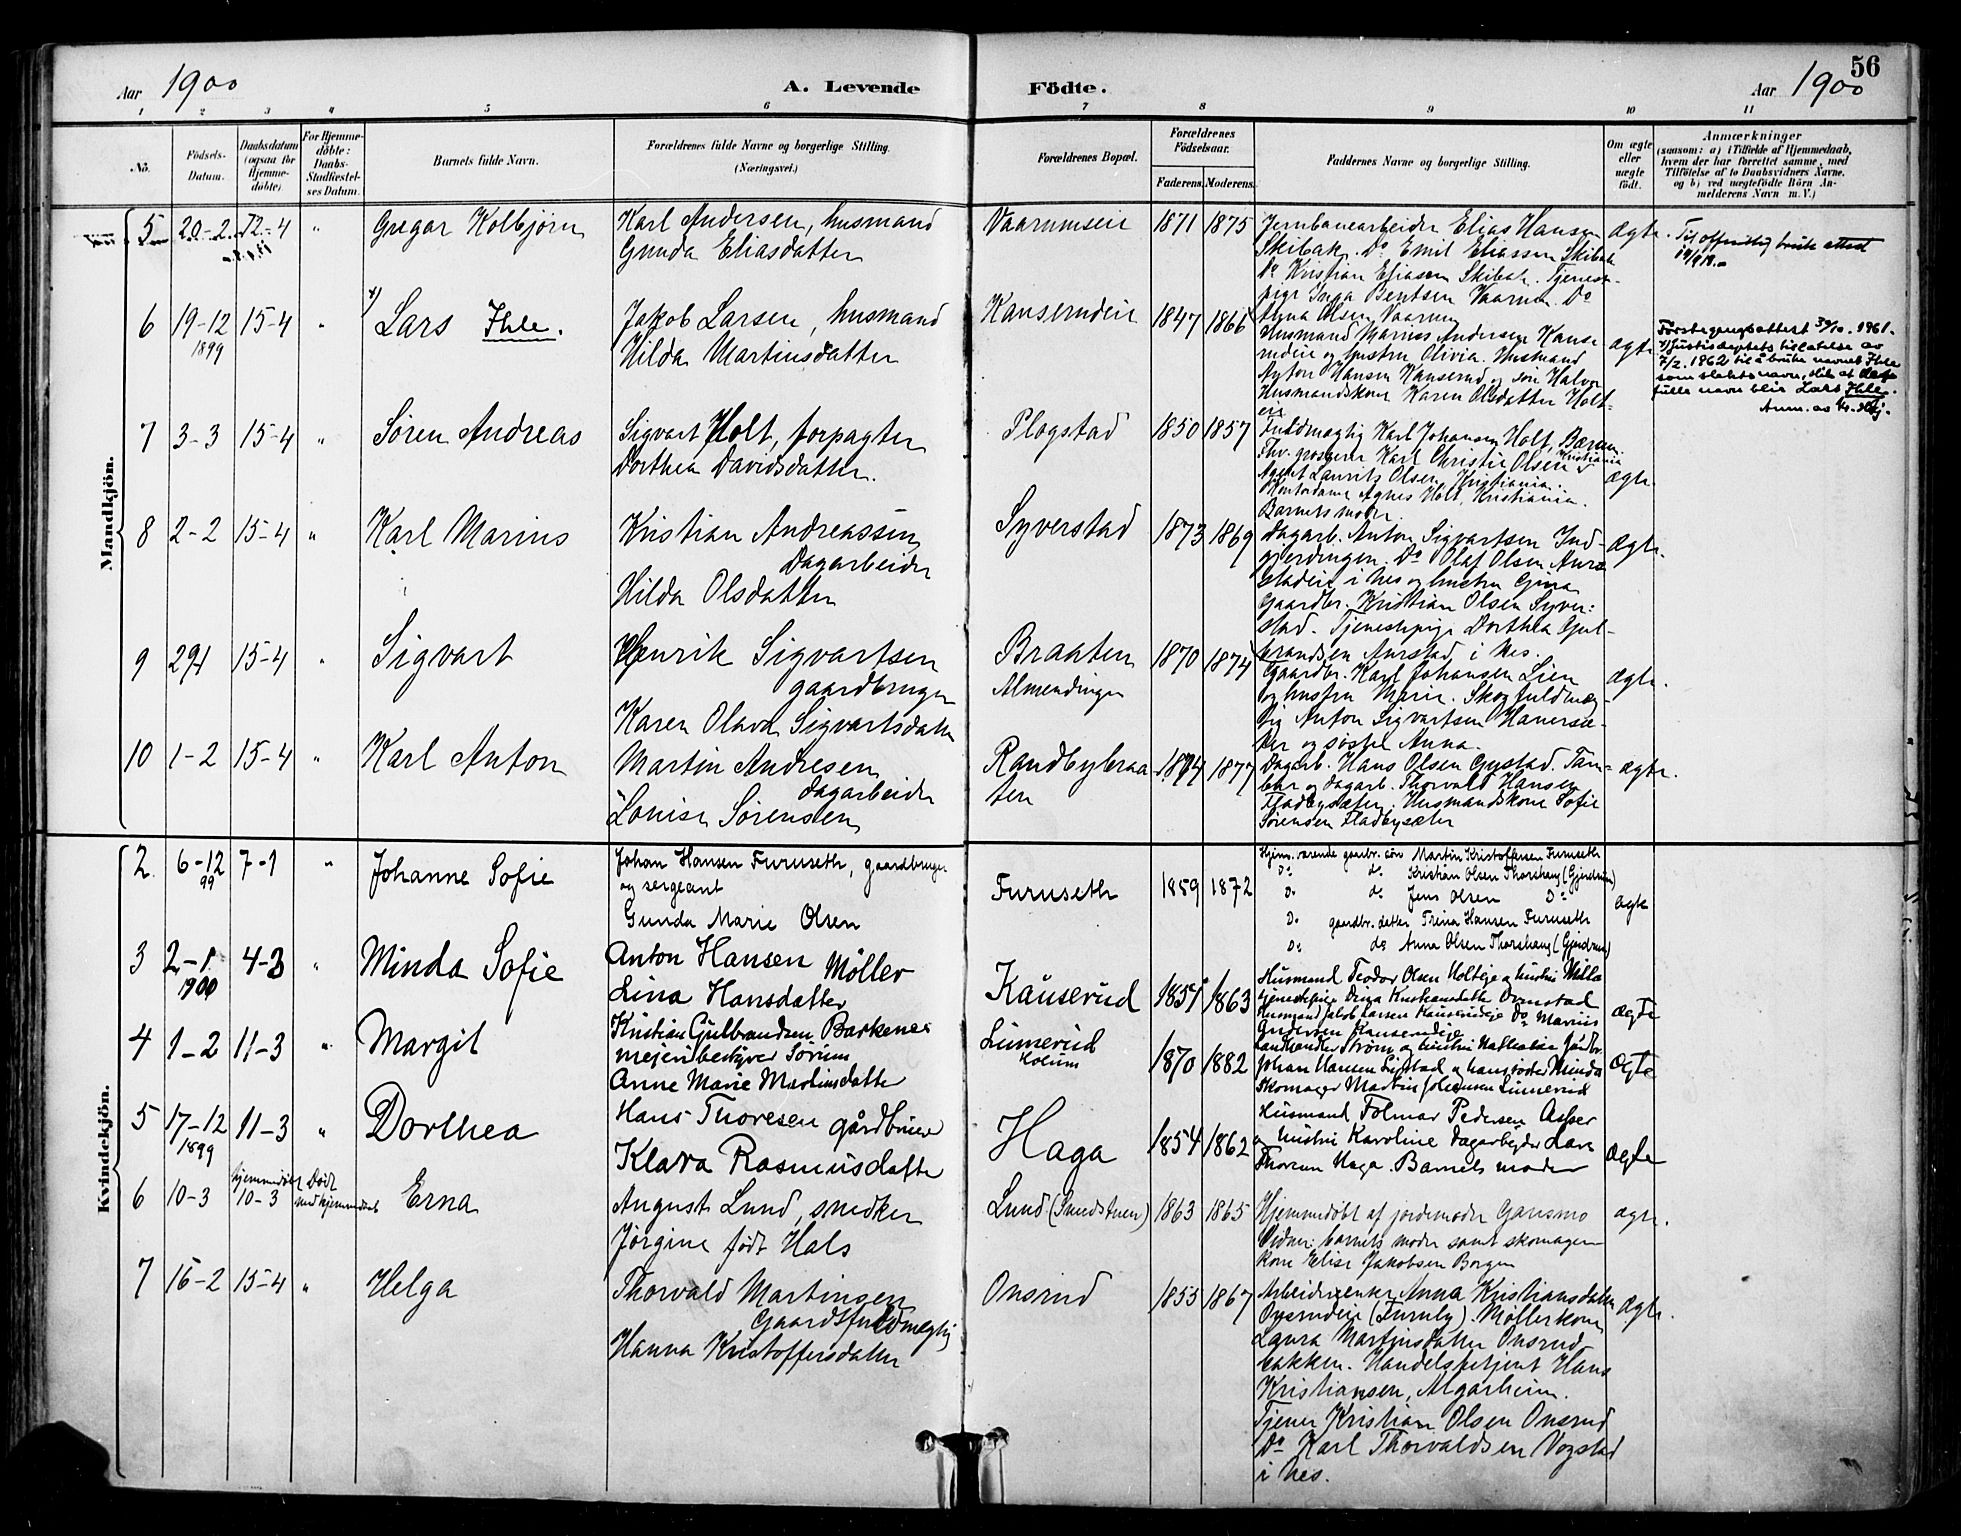 56
Aar 1900 A. Levende Födte. Aar 1900
1 2 3 4 5 6 7 8 9 10 11
No. Födsels-Datum. Daabsdatum (ogsaa for Hjemmedöbte). For Hjemmedöbte: Daabs-Stadfæstelses Datum. Barnets fulde Navn. Forældrenes fulde Navne og borgerlige Stilling. (Næringsvei.) Forældrenes Bopæl. Forældrenes Födselsaar. Faderens. Moderens. Faddernes Navne og borgerlige Stilling. Om ægte eller uægte födt. Anmærkninger (saasom: a) i Tilfælde af Hjemmedaab, hvem der har forrettet samme, med Tilföielse af to Daabsvidners Navne, og b) ved uægtefödte Börn Anmelderens Navn m. V.)
Mandkjön.
5 20-2 12-4 " Gregar Kolbjörn
Karl Andersen, husmand
Gunda Eliasdatter
Vaarumseie 1871 1875
Jernbanearbeider Elias Hansen
Skibak. Do Emil Eliassen Skibak
Do Kristian Eliasen Skibak. Tjenestepige Inga Bentsen Vaarum. Do
Anna Olsen, Vaarum
ægte.
Til offentlig bruk attest
6 19-12 1899 15-4 " Lars Ihle.
Jakob Larsen, husmand
Hilda Martinsdatter
Kanserudeie 1847 1866
Husmand Marius Andersen Kanserudeie og hustru Olivia. Husmand
Anton Hansen Kanserud og sön Halvor
Husmandskone Karen Olsdatter Holteie
ægte
Förstegangsattest 30/10. 1961.
Justisdeptets tillatelse av
7/2. 1962 til å bruke navnet Ihle
som slektsnavn, slik at
fulle navn blir Lars Ihle.
7 3-3 15-4 " Sören Andreas
Sigvart Holt, forpagter
Dorthea Davidsdatter.
Plogstad 1850 1857
Fuldmægtig Karl Johansen Holt, Bærum.
Fhv. grosserer Karl Christie Olsen Kristiania
Agent Laurits Olsen, Kristiania.
Kontordame Agnes Holt, Kristiania.
Barnets moder.
ægte.
8 2-2 15-4 " Karl Marius
Kristian Andreassen
Dagarbeider
Hilda Olsdatter
Syverstad 1873 1869
Dagarb. Anton Sigvartsen Indgjerdingen. Do Olaf Olsen
i Nes og hustru Gina
Gaardbr. Kristian Olsen Syverstad. Tjenestepige Dorthea Gulbrandsen Aurstad i Nes.
ægte.
9 29-1 15-4 " Sigvart
Henrik Sigvartsen
gaardbruger
Karen Olava Sigvartsdatter
Braaten
Almendingen
1870 1874
Gaardbr. Karl Johansen Lien
og hustru Marie. Skogfuldmægtig Anton Sigvartsen
og söster Anna.
ægte.
10 1-2 15-4 " Karl Anton
Martin Andresen
dagarbeider
Lovise Sörensen
Randbybraaten 1874 1877
Dagarb. Hans Olsen Gystad. Tambur og dagarb. Thorvald Hansen
Fladbysæter. Husmandskone Sofie
Sörensen Fladbysæter
ægte.
Kvindekjön.
2. 6-12 99 7-1 " Johanne Sofie
Johan Hansen Furuseth, gaardbruger
og sergeant
Gunda Marie Olsen
Furuseth 1859 1872
Hjem.værende gaardbr. sön Martin Kristoffersen Furuseth
Do do Kristian Olsen Thorshaug (Gjerdrum)
Do do Jens Olsen Do
Do gaardbr. datter Trina Hansen Furuseth
Do do Anna Olsen Thorshaug (Gjerdrum)
ægte
3 2-1 1900 4-3 " Minda Sofie
Anton Hansen Möller
Lina Hansdatter
Kauserud 1857 1863
Husmand Teodor Olsen Holteje og hustru Milla
tjenestepige Dina Kristiansdatter
Husmand Jakob Larsen Kauserudeje Do Marius
Andersen Kauserudeje
ægte
4 1-2 11-3 " Margit
Kristian Gulbrandsen Barkenes
mejeribestyrer Sörum
Anne Marie Martinsdatter
Linnerud
Holum
1870 1882
Landhandler Ström og hustru Nathalie Gårdbr.
Johan Hansen Ligstad og hans söster Minda
Skomager Martin Johansen Linnerud
ægte
5 17-12 1899 11-3 " Dorthea
Hans Thoresen gårdbruger
Klara Rasmusdatter
Haga 1854 1862
Husmand Folmar Pedersen Asper
og hustru Karoline dagarbejder Lars
Thoresen Haga. Barnets moder
ægte
6 10-3 hjemmedöbt 10-3 Död med hjemmedaab Erna
August Lund, snedker
Jörgine födt Hals
Lund (Lundstuen) 1863 1865
Hjemmedöbt af jordemoder Gansmo
Vidner: barnets moder samt skomagerkone Elise Jakobsen Borgen
ægte.
7 16-2 15-4 " Helga
Thorvald Martinsen
Gaardsfuldmægtig
Hanna Kristoffersdatter
Onsrud 1855 1867
Arbeiderenke Anna Kristiansdatter
Onsrudeie (Furuly). Möllerkone
Laura Martinsdatter Onsrudbakken. Handelsbetjent Hans
Kristiansen, Algarheim.
Tjener Kristian Olsen Onsrud
Do Karl Thorvaldsen Vogstad
i Nes.
ægte.